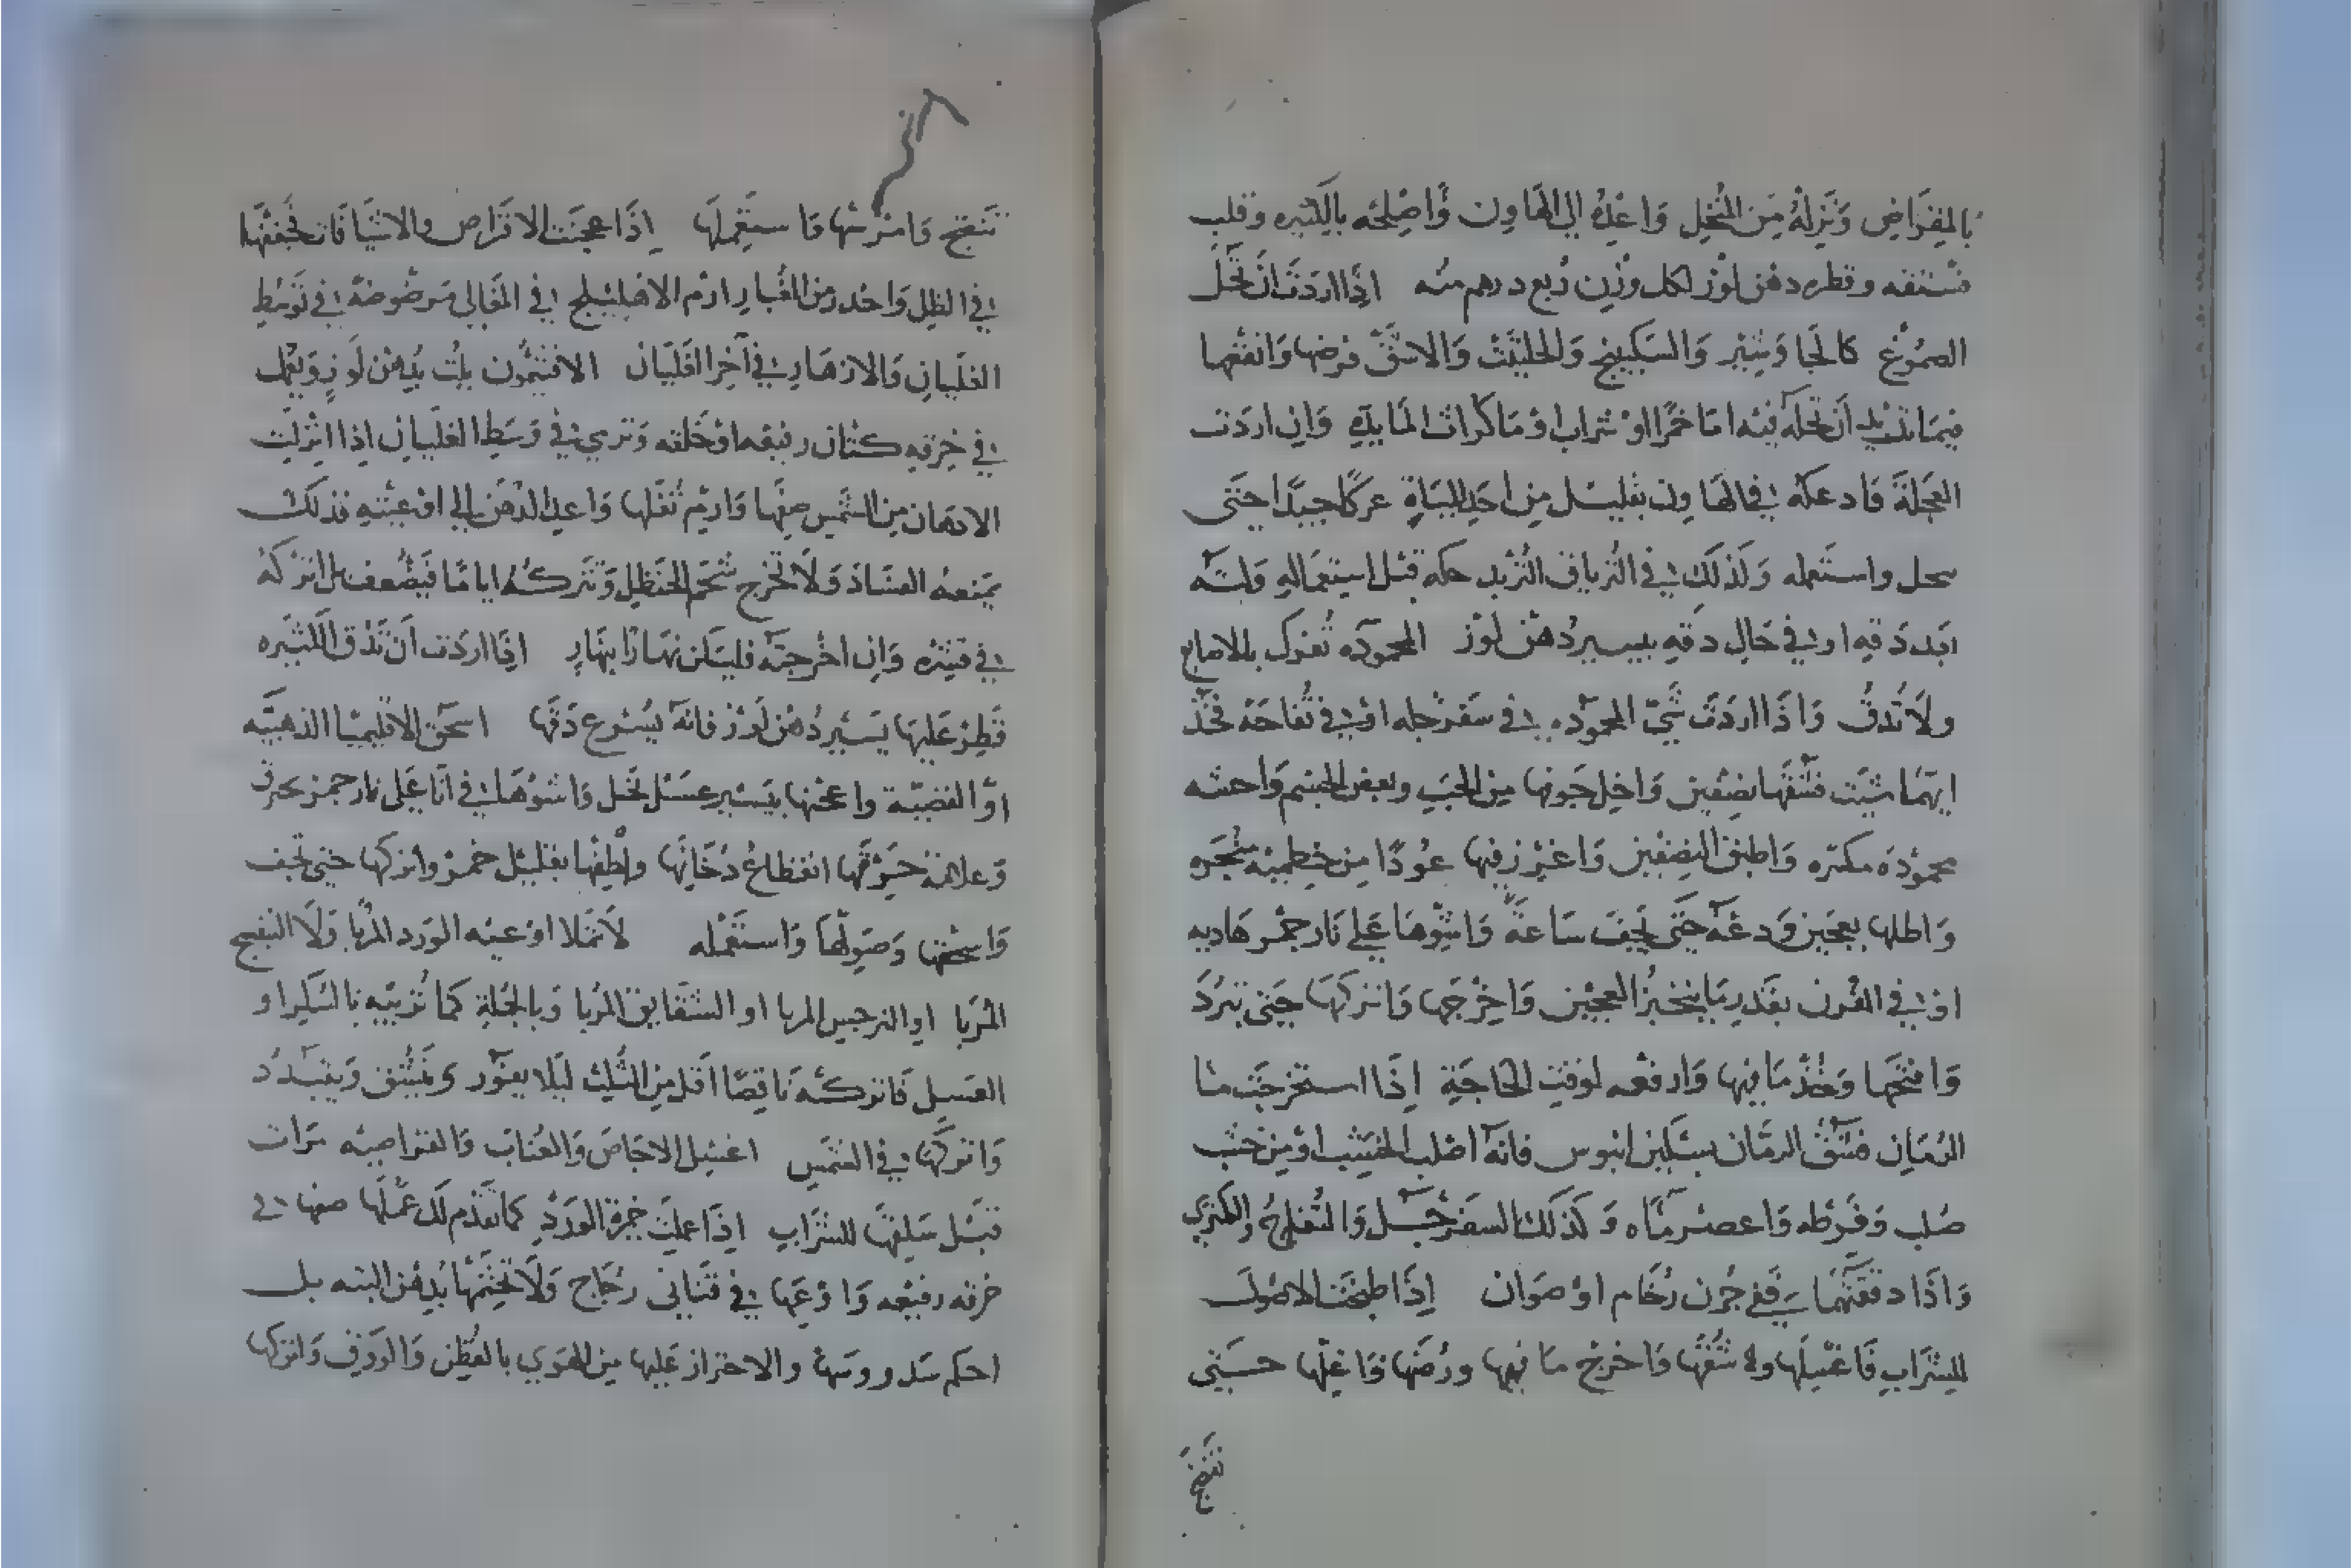 بالمِقرَاضِ وَتَنزِلهُ مِنَ المُنْخُلِ وَاعِدهُ الى الهَاوِن وَاصْلِحْه بالكثيره وقلب
فستقه وقطره دهْن لوْز لكل وزْنِ رُبع درهم منه اذا اردَت انْ تحُلّ
الصمُوْغ كالجَاوَشِيْر وَالسَكبينج وَالحلتيْتْ وَالاشقّ فرضها وَانقعْهَا
فيمَا تريْد اَن تحله فيْه امَا خمرًا اوْ شراب اوْ مَا كراث المَايده وَان اردَت
العَجَلَةَ فادعكه في الهَاون بقليْل من احَد المِيَاهِ عركًا جيدًا حَتى
ينحل واستعمله وَكذلكَ في الترياق التُرْبد حكه قبْل استعمَالهِ وَلته
بَعد دَقهِ او في حَال دقهِ بيسير دُهْن لوْز المحمودَه تُفرَك بالاصَابع
ولَا تُدقُّ وَاذَا اردَت شَيّ المحموْدَه في سَفرْجله اوْ في تُفاحَة فخُذْ
ايّهمَا شيْت فشقهَا نِصْفين وَاخل جَوفهَا مِنَ الحَب وبَعض الجسْم وَاحشه
محموْدَه مكسّره وَاطبق النِصْفين وَاغرز فيها عُودًا من خِطميّة شجَره
وَاطلها بعَجين وَدعهُ حَتى تجِفّ سَاعةً وَاشْوِهَا عَلى نَار جمْر هَاديه
اوْ في الفُرن بقدر مَا ينخبز العجِين وَاخْرِجهَا وَاتركهَا حَتى تبرُدَ
وَافتحهَا وَخُذ مَا فيها وَارفعْه لوَقتِ الحَاجَةِ اذَا استخرَجتَ مَا
الرُمَان فشُقّ الرمَّان بسكين ابنوس فانّه اصْلب الخشب اوْ مِن خشب
صُلب وَفَرّطه وَاعصر مَاه وَكذلك السفرْجَل وَالتُفاح وَالكمثرى
وَاذَا دققتهمَا ففي جُرن رُخَام اوْ صَوان اذَا طبَخت الاصُولَ
للشَرَاب فَاغسِلهَا وشقّهَا وَاخرجْ مَا فيهَا ورُضّهَا وَاغلهَا حَتى
تنضج
تَنضج وَامرسْهَا وَاستعْملهَا اذَا عجَنت الاقرَاص والاشيَافَات فجففْهَا
في الظِل وَاحذر من الغُبار ارْمِ الاهليْلج في المغَالي مَرضُوضَه في وَسَط
الغلَيان وَالازهَار في آخر الغَليَان الافتيمُون يلتّ بدهْن لوزٍ وَيعْمل
في خرقه كتان رفيْعه اوْ مخلخله وَترمي في وَسَط الغلَيان اذا انزلت
الادهَان من الشمْس صفّها وَارْم ثفلها وَاعد الدُهن الى اوْعيته فذلك
يمنعهُ الفسَادَ وَلَا تخرج شَحَم الحَنظل وَتتركهُ ايامًا فيضْعف بل اتركهُ
في قشره وَان اخرجتَه فليَكن نهَارًا بنهَار اذَا اردَت انْ تدْق الكثيره
قطر عَليهَا يسيْر دُهْن لوْز فانّه يُسرع دَقّها اسحَق الاقليميَا الذهبيّه
اوْ الفضيّة واعجنها بيسيْر عسَل نحل وَاشوْهَا في انَا عَلى نار جمر تحرق
وَعلامَة حَرْقهَا انقطاع دُخَانهَا وَاطفِهَا بقليْل خمرٍ واتركها حَتى تجف
وَاسحقها وَصَوِّلهَا وَاستعمله لَا تملَا اوْعيه الورَد المُربّا وَلَا البنفسج
المُربَا او النرجس المربا او الشقايق المُرَبا وَبالجُملة كمَا تُربيّه بالسُكر او
العسَل فاتركهُ نَاقصًا اقل من الثُلث ليلا يفوّر وَينشق وَيفسد
وَاتركهَا في الشمْس اغسل الاجَاص وَالعُنابَ وَالقراصيَه مَرات
قبْل سَلقهَا للشرَاب اذَا عملت خمرة الورَد كما تقدم لك عَملها صفها في
خرقه رفيْعه وَاوْعهَا في قنَاني زجَاج وَلَا تختمْهَا بدهْن البته بل
احكم سَد روسها والاحتراز عَليها من الهَوي بالقُطن وَالورَق وَاتركها